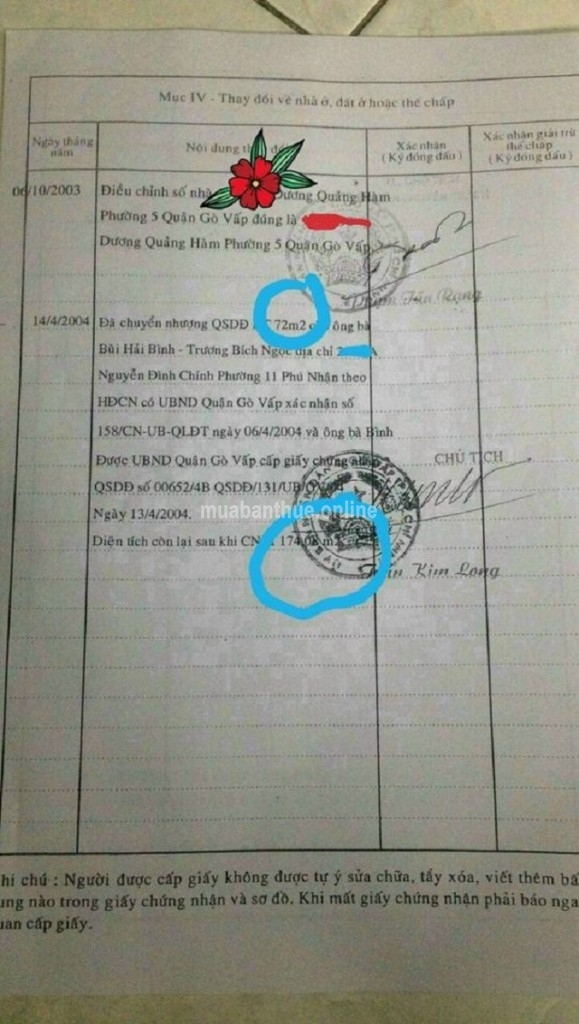 Mục IV - Thay đổi về nhà ở, đất ở hoặc thế chấp
Ngày tháng năm
Nội dung
Xác nhận
( Ký đóng dấu )
Xác nhận giải trừ
thế chấp
( Ký đóng dấu )
06/10/2003
Điều chỉnh số nhà Dương Quảng Hàm
Phường 5 Quận Gò Vấp đúng là
Dương Quảng Hàm Phường 5 Quận Gò Vấp
14/4/2004
Đã chuyển nhượng QSDĐ 72m2 ông bà
Bùi Hải Bình - Trương Bích Ngọc địa chỉ
Nguyễn Đình Chính Phường 11 Phú Nhận theo
HĐCN có UBND Quận Gò Vấp xác nhận số
158/CN-UB-QLĐT ngày 06/4/2004 và ông bà Bình
Được UBND Quận Gò Vấp cấp giấy chứng nhận
QSDĐ số 00652/4B QSDĐ/131/UB
Ngày 13/4/2004.
Diện tích còn lại sau khi CN 174,08 m
CHỦ TỊCH
Trần Kim Long
muabanthue.online
hi chú : Người được cấp giấy không được tự ý sửa chữa, tẩy xóa, viết thêm bấ
ung nào trong giấy chứng nhận và sơ đồ. Khi mất giấy chứng nhận phải báo nga
uan cấp giấy.